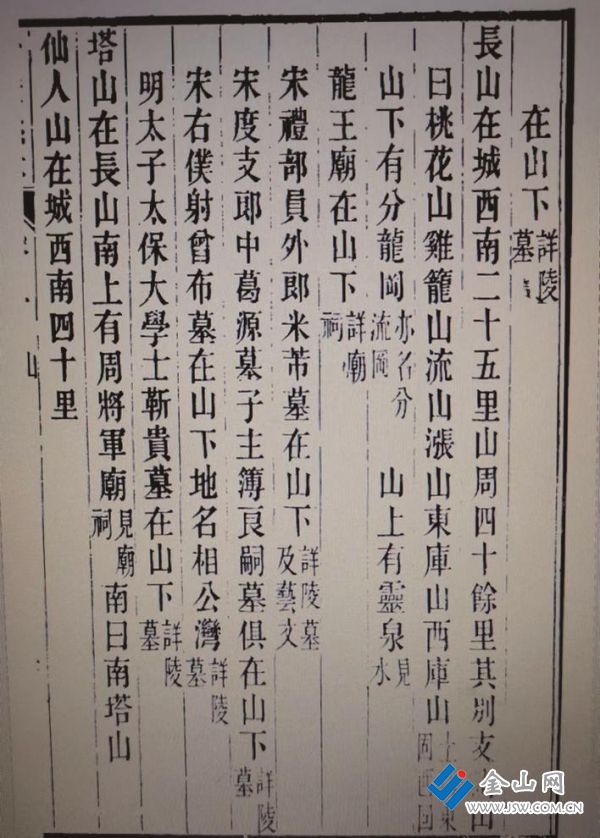 在山下詳陵墓
長山在城西南二十五里山周四十餘里其別支
曰桃花山雞籠山流山漲山東庫山西庫山
山下有分龍岡亦名分流岡 山上有靈泉見水
龍王廟在山下詳廟祠
宋禮部員外郎米芾墓在山下詳陵墓及藝文
宋度支郎中葛源墓子主簿良嗣墓俱在山下詳陵墓
宋右僕射曾布墓在山下地名相公灣詳陵墓
明太子太保大學士靳貴墓在山下詳陵墓
塔山在長山南上有周將軍廟見廟祠南曰南塔山
仙人山在城西南四十里
山
金山网
WWW.JSW.COM.CN